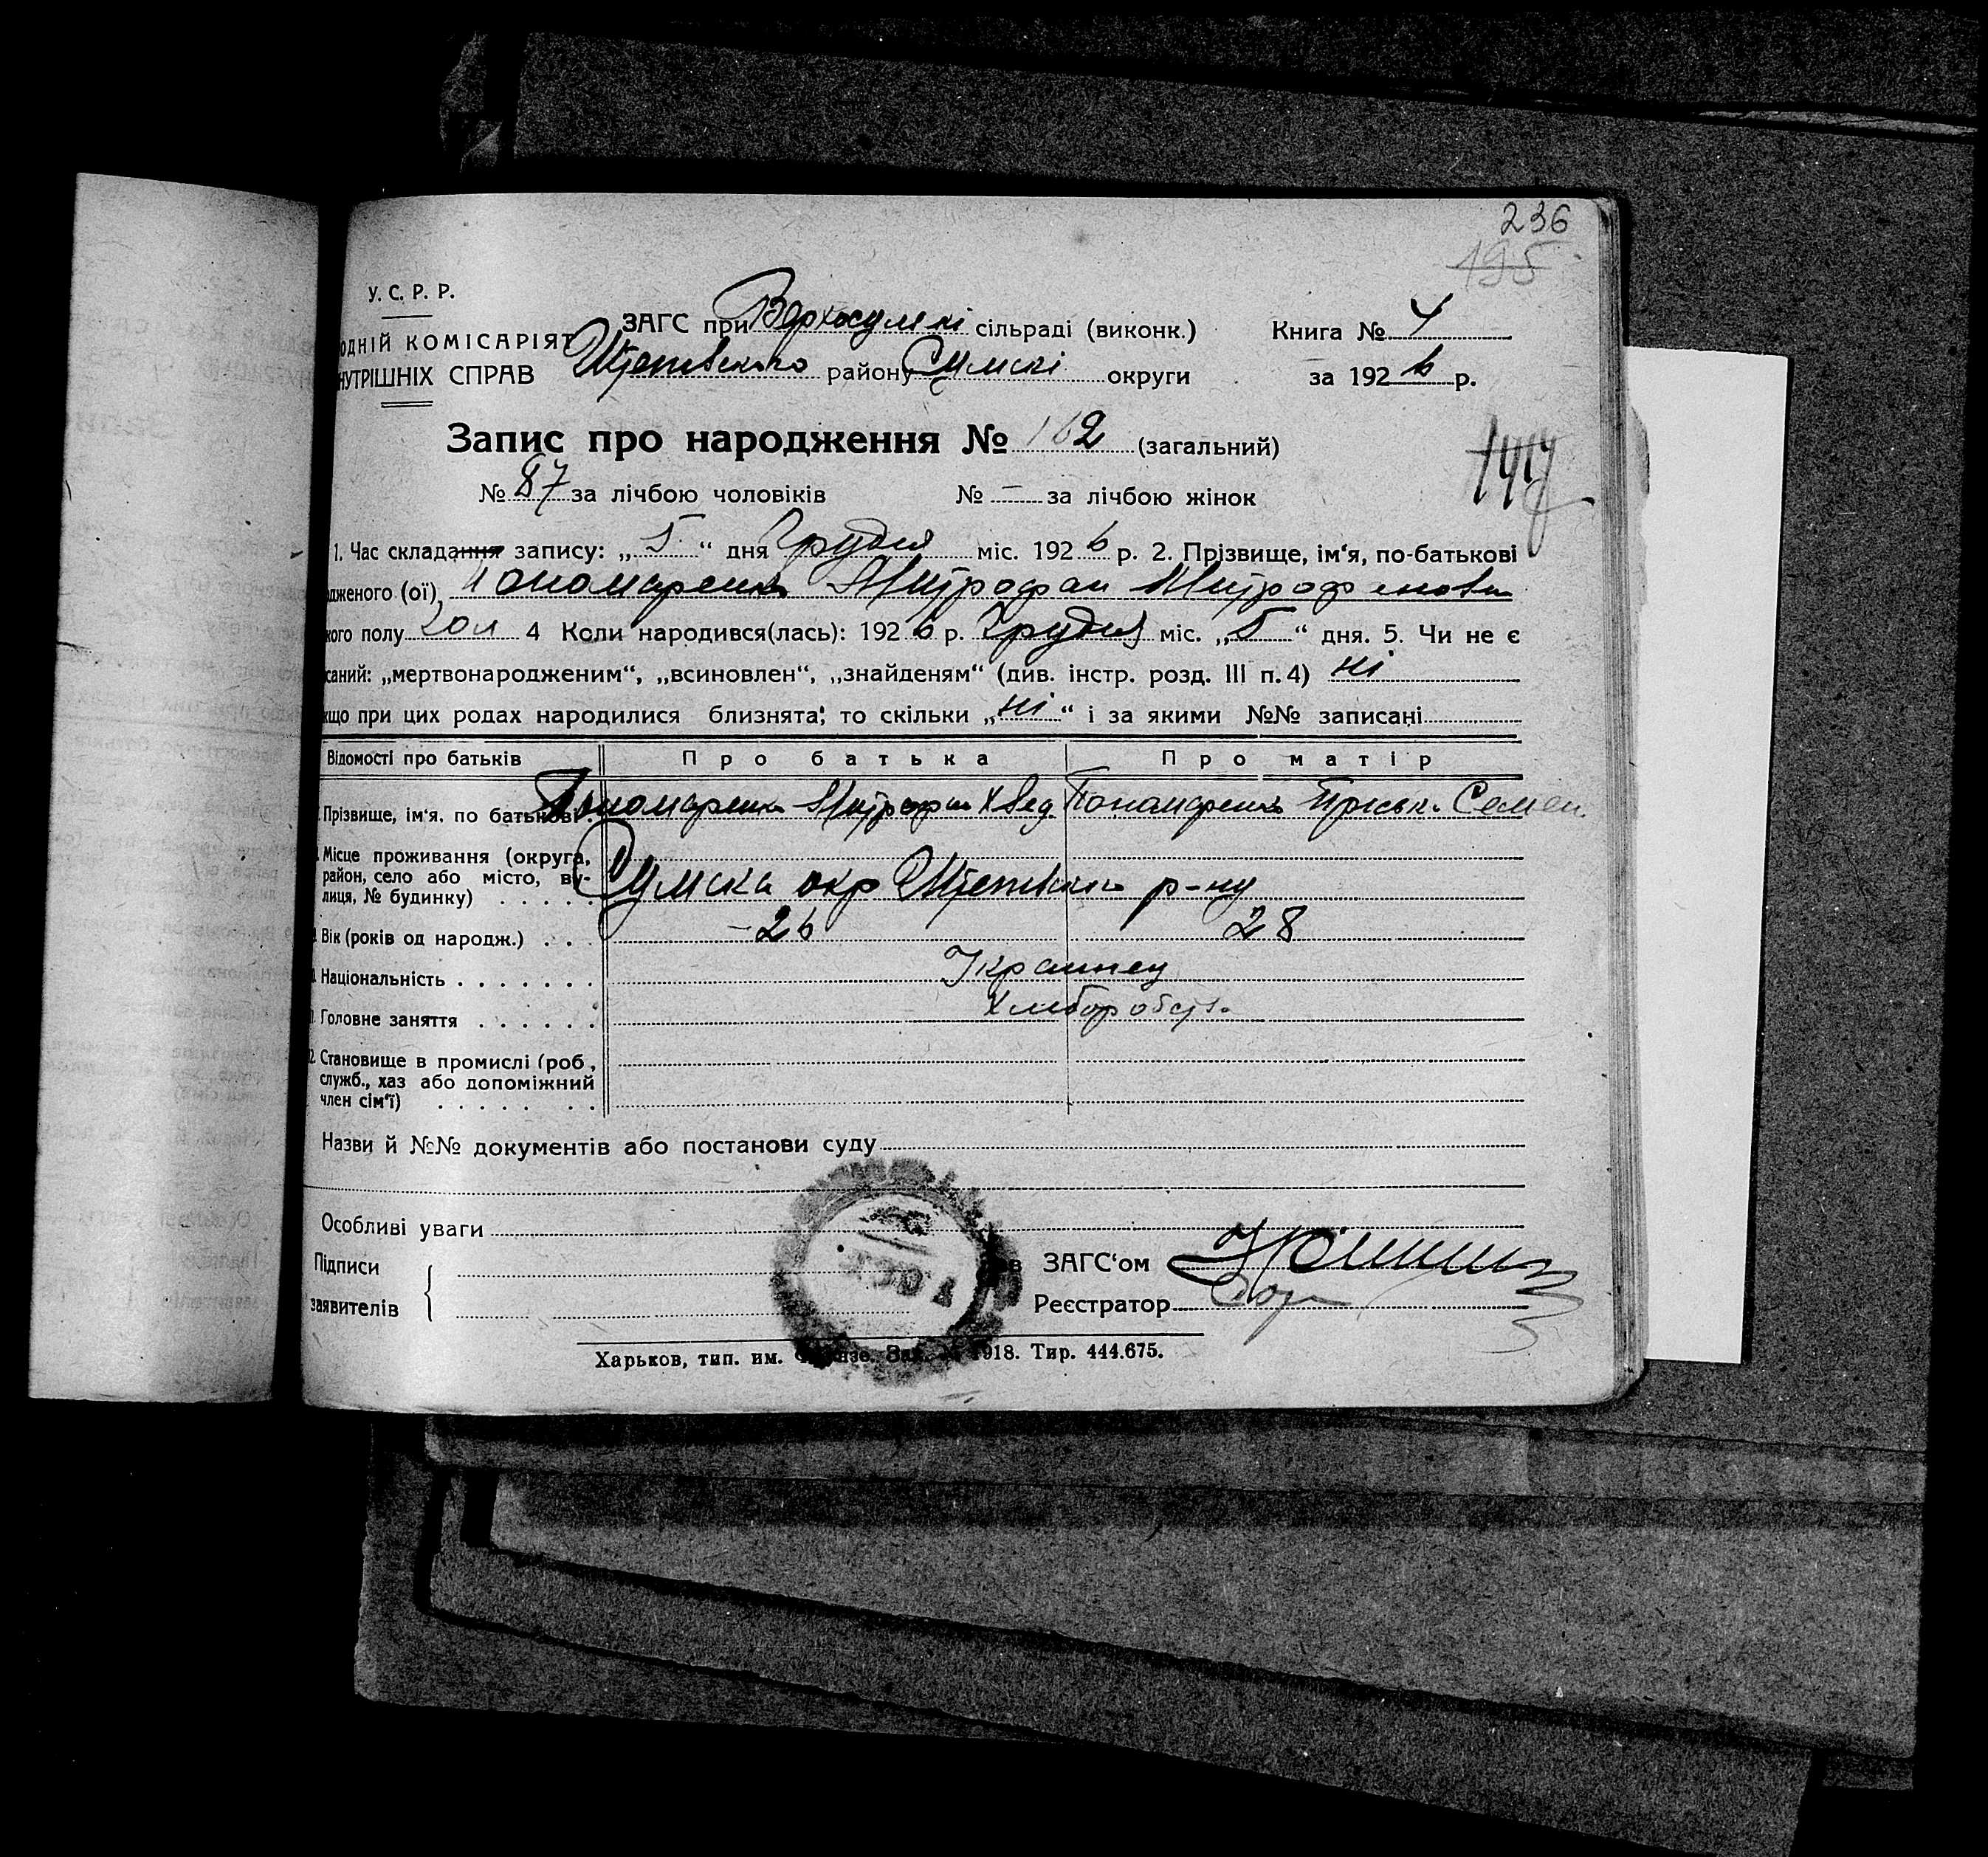 236
195
У. С. Р. Р.
ОДНІЙ КОМІСАРІЯТ
НУТРІШНІХ СПРАВ
ЗАГС при Верхосумкі сільраді (виконк.)
Книга № 4
району Сумскі округи
за 1926 р.
Запис про народження № 162 (загальний)
№ 87 за лічбою чоловіків № – за лічбою жінок
1. Час складання запису: „5“ дня Грудня міс. 1926 р. 2. Прізвище, ім'я, по-батькові
дженого (ої) Пономаренко Митрофан Митрофанови
кого полу чол 4 Коли народився(лась): 1926 р. Грудня міс. „5“ дня. 5. Чи не є
саний: „мертвонародженим“, „всиновлен“, „знайденям“ (див. інстр. розд. III п. 4) ні
кщо при цих родах народилися близнята; то скільки „ні“ і за якими №№ записані
Відомості про батьків Про батька Про матір
Прізвище, ім'я. по батькові. Пономаренко Митрофан Хвед. Пономаренко Семен.
Місце проживання (округа, район, село або місто, ву-
лиця, № будинку) Сумска окр р-ну
Вік (років од народж.) 26 28
Національність Украинец
Головне заняття Хлибороб
Становище в промислі (роб,
служб., хаз або допоміжний
член сім'ї)
Назви й №№ документів або постанови суду
Особливі уваги
Підписи
заявителів
ЗАГС'ом
Реєстратор
Харьков, тип. им. 1918. Тир. 444.675.